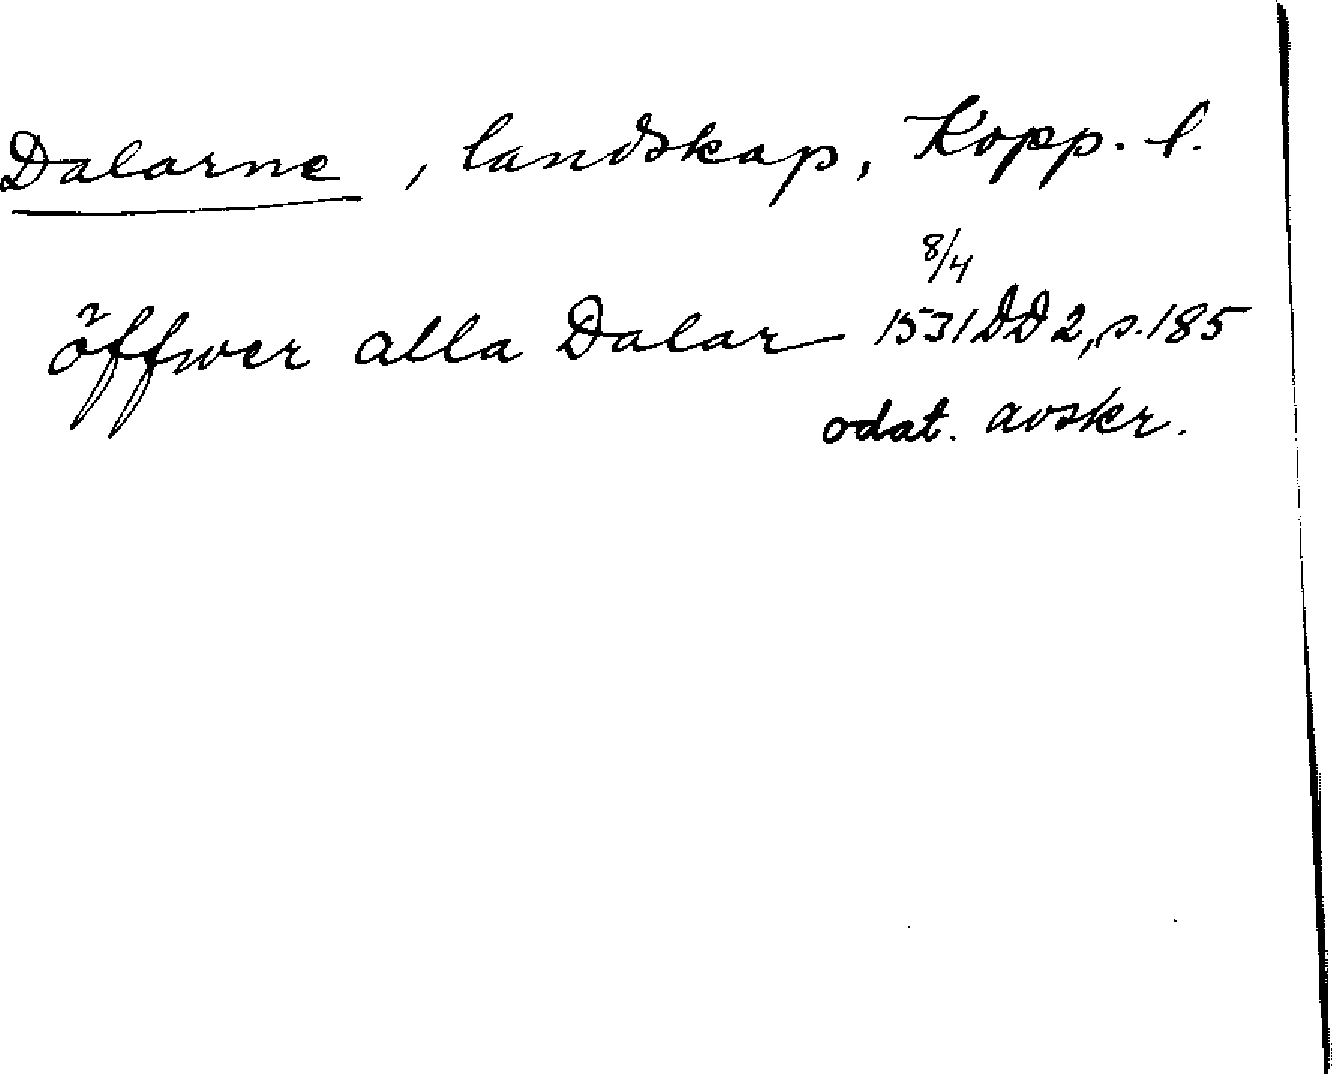 Dalarne, landskap, Kopp. l.
8/4
öffwer alla Dalar 1531 DD 2, s. 185
odat. avskr.